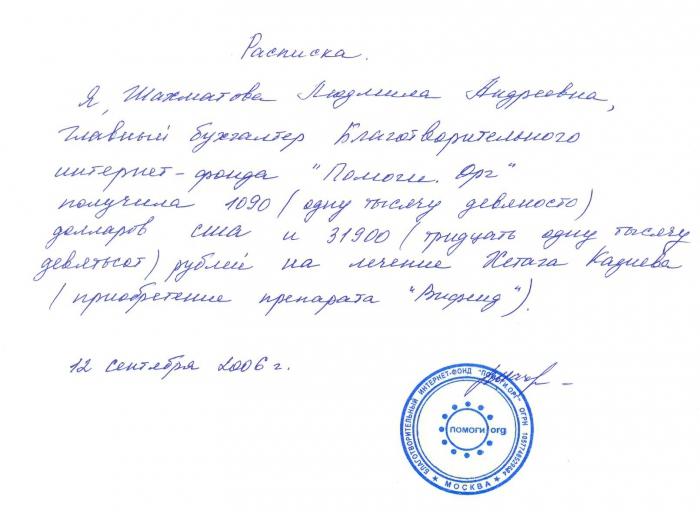 Расписка.
Я, Шахматова Людмила Андреевна,
главный бухгалтер Благотворительного
интернет-фонда "Помоги. Орг"
получила 1090 (одну тысячу девяносто)
долларов сша и 31900 (тридцать одну тысячу
девятьсот) рублей на лечение Хетага Кадиева
(приобретение препарата "Вифенд").
12 сентября 2006 г.
БЛАГОТВОРИТЕЛЬНЫЙ ИНТЕРНЕТ-ФОНД "ПОМОГИ.ОРГ" ОГРН
* МОСКВА *
ПОМОГИ.org